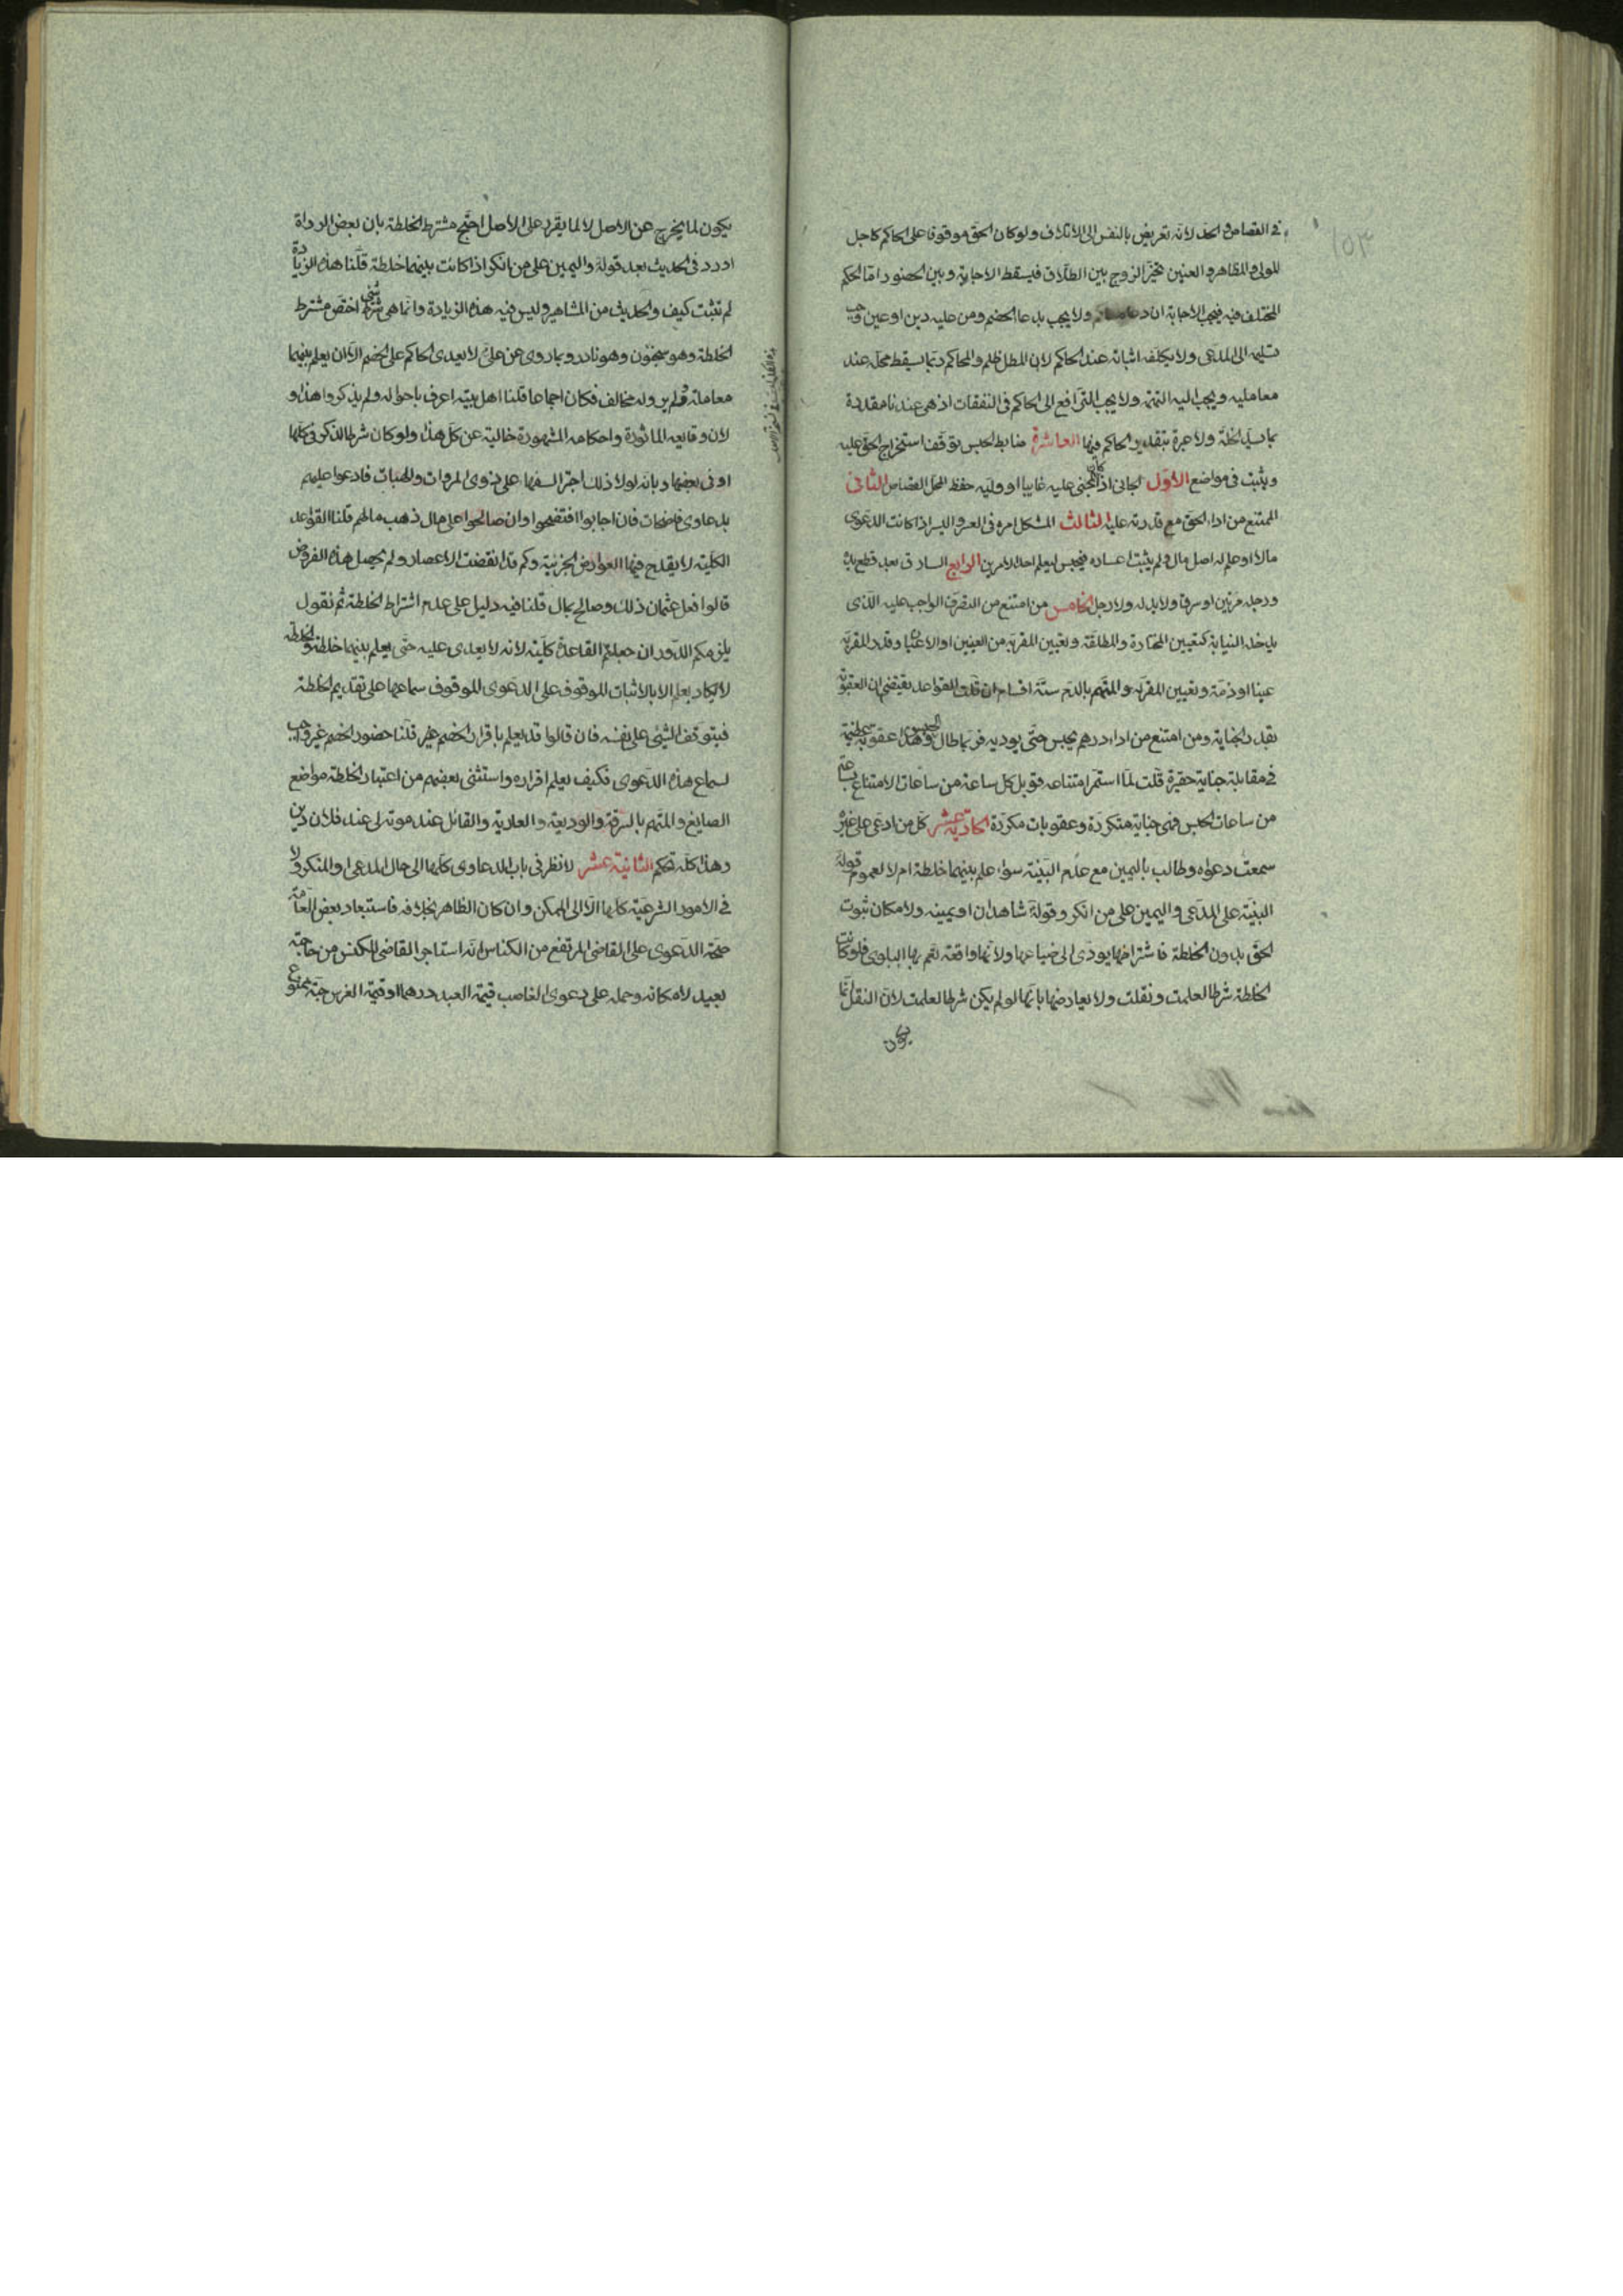 ١٥٣
في القصاص والحد لانه تعريض بالنفس الى الاتلاف ولو كان الحق موقوفا على الحاكم كاجل
المولى والمظاهر والعنين تخير الزوج بين الطلاق فيسقط الاجابة وبين الحضور اما الحكم
المختلف فيه فيجب الاجابة ان دعا ولا يجب بدعا الخصم ومن عليه دين او عين وجب
تسليمه الى المدعى ولا يكلفه اثباته عند الحاكم لان المطل ظلم والحاكم ربما يسقط محله عند
معامليه ويجب اليه التهمة ولا يجب الترافع الى الحاكم في النفقات اذ هى عندنا مقدرة
بما يسد الخلة ولا عبرة بتقدير الحاكم فيها العاشرة ضابط الحبس توقف استخراج الحق عليه
ويثبت فى مواضع الاول الجانى اذا كان المجنى عليه غايبا او وليه حفظ المحل القصاص الثانى
الممتنع من اداء الحق مع قدرته عليه الثالث المشكل امره فى العسر واليسر اذا كانت الدعوى
مالا او علم له اصل مال ولم يثبت اعساره فيحبس ليعلم احد الامرين الرابع السارق بعد قطع يده
ورجله مرتين او سرق ولا يد له ولا رجل الخامس من امتنع من التصرف الواجب عليه الذى
لا يدخله النيابة كتعيين المختارة والمطلقة وتعيين المقر به من العينين او الاعيان وقدر المقر به
عينا او ذمة وتعيين المقر له والمتهم بالدم ستة ايام فان قلت القواعد تقتضى ان العقوبة
بقدر الجناية ومن امتنع من اداء درهم يحبس حتى يوديه فربما طال الحبس وهذا عقوبة عظيمة
فى مقابلة جناية حقيرة قلت لما استمر امتناعه قوبل كل ساعة من ساعات الامتناع بساعة
من ساعات الحبس فهى جناية متكررة وعقوبات مكررة الحادية عشر كل من ادعى على غيره
سمعت دعواه وطالب باليمين مع عدم البينة سواء علم بينهما خلطة ام لا لعموم قوله
البينة على المدعى واليمين على من انكر وقوله شاهدان او يمينه ولامكان ثبوت
الحق بدون الخلطة فاشتراطها يودى الى ضياعها ولانها واقعة تعم بها البلوى فلو كانت
الخلطة شرطا لعلمت ونقلت ولا يعارضها بانها لو لم يكن شرطا لعلمت لان النقل انما
يكون
يكون لما يخرج عن الاصل لا لما يقرر على الاصل احتج مشترط الخلطة بان بعض الرواة
اورد فى الحديث بعد قوله واليمين على من انكر اذا كانت بينهما خلطة قلنا هذه الزيادة
لم تثبت كيف والحديث من المشاهير وليس فيه هذه الزيادة وانما هى شئ اختص مشترط
الخلطة وهو سحنون وهو نادر وبما روى عن على لا يعدى الحاكم على الخصم الا ان يعلم بينهما
معاملة ولم يرو له مخالف فكان اجماعا قلنا اهل بيته اعرف باحواله ولم يذكروا هذا و
لان وقايعه الماثورة واحكامه المشهورة خالية عن كل هذا ولو كان شرطا لذكر فى كلها
او فى بعضها وبانه لولا ذلك اجترا السفهاء على ذوى المروات والهيئات فادعوا عليهم
بدعاوى فاضحات فان اجابوا افتضحوا وان صالحوا على مال ذهب مالهم قلنا القواعد
الكلية لا يقدح فيها العوارض الجزئية وكم قد انقضت الاعصار ولم يحصل هذه الفروض
قالوا فعل عثمان ذلك وصالح بمال قلنا فيه دليل على عدم اشتراط الخلطة ثم نقول
يلزمكم الدور ان جعلتم القاعدة كلية لانه لا يعدى عليه حتى يعلم بينهما خلطة والخلطة
لا يكاد يعلم الا بالاثبات الموقوف على الدعوى الموقوف سماعها على تقديم الخلطة
فيتوقف الشئ على نفسه فان قالوا قد يعلم باقرار الخصم قلنا حضور الخصم غير واجب
لسماع هذه الدعوى فكيف يعلم اقراره واستثنى بعضهم من اعتبار الخلطة مواضع
الصايغ والمتهم بالسرقة والوديعة والعارية والقائل عند موته لى عند فلان دين
وهذا كله تحكم الثانية عشر لا نظر فى باب الدعاوى كلها الى حال المدعى والمنكر ولا
فى الامور الشرعية كلها الا الى الممكن وان كان الظاهر بخلافه فاستبعاد بعض العامة
صحة الدعوى على القاضى المرتفع من الكناس انه استاجر القاضى للكنس من حاجة
بعيد لامكانه وحمله على دعوى الغاصب قيمة العبد درهما او قيمة الفرس حبة ممنوع